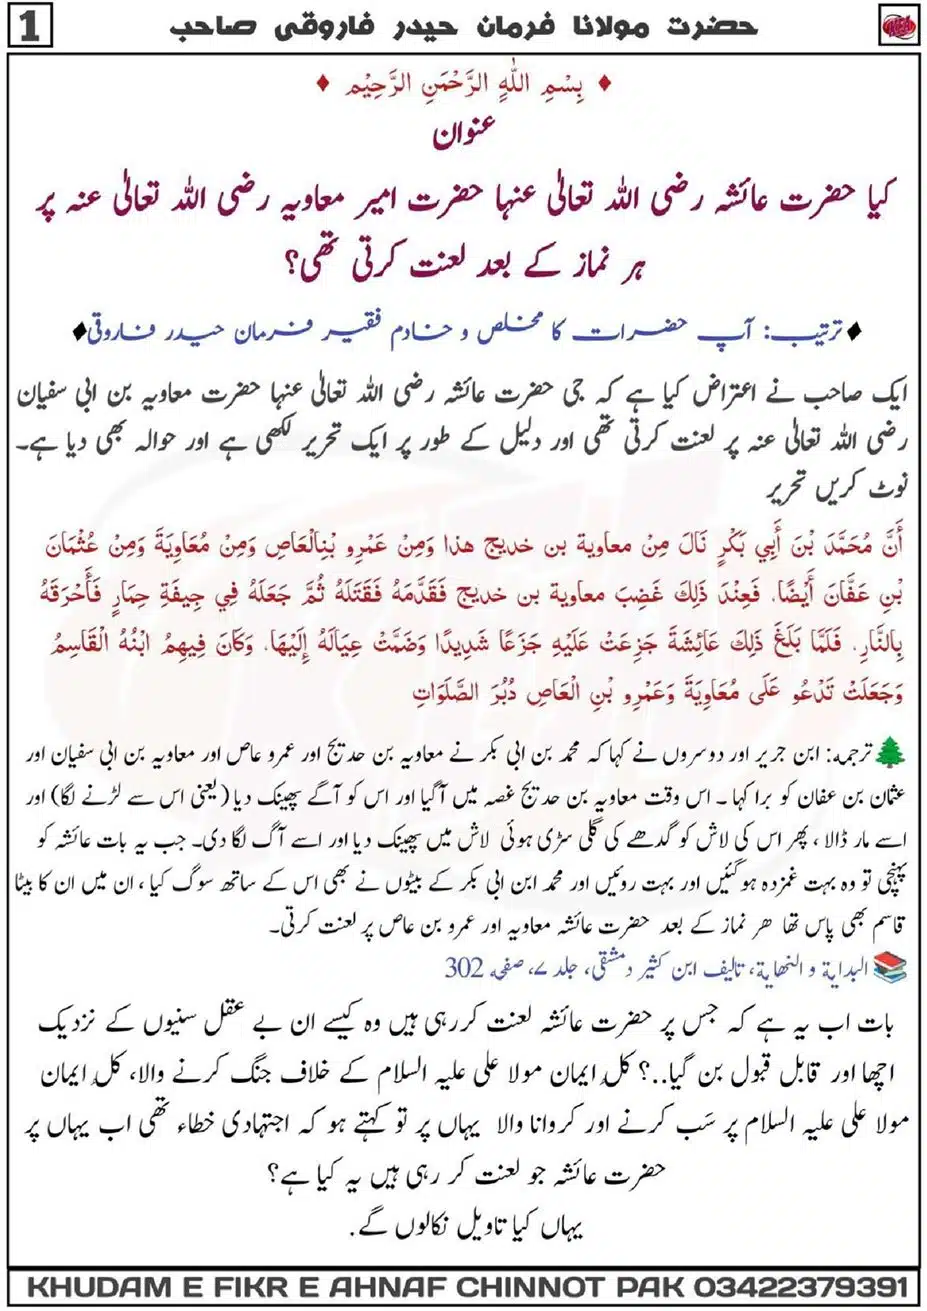 1
حضرت مولانا فرمان حیدر فاروقی صاحب
♦ بِسْمِ اللّٰهِ الرَّحْمَنِ الرَّحِيْمِ ♦
عنوان
کیا حضرت عائشہ رضی اللہ تعالیٰ عنہا حضرت امیر معاویہ رضی اللہ تعالیٰ عنہ پر
ہر نماز کے بعد لعنت کرتی تھی؟
♦ترتیب: آپ حضرات کا مخلص و خادم فقیر فرمان حیدر فاروقی♦
ایک صاحب نے اعتراض کیا ہے کہ جی حضرت عائشہ رضی اللہ تعالیٰ عنہا حضرت معاویہ بن ابی سفیان
رضی اللہ تعالیٰ عنہ پر لعنت کرتی تھی اور دلیل کے طور پر ایک تحریر لکھی ہے اور حوالہ بھی دیا ہے۔
نوٹ کریں تحریر
أَنَّ مُحَمَّدَ بْنَ أَبِي بَكْرٍ نَالَ مِنْ معاوية بن خديج هذا وَمِنْ عَمْرِو بْنِالْعَاصِ وَمِنْ مُعَاوِيَةَ وَمِنْ عُثْمَانَ
بْنِ عَفَّانَ أَيْضًا. فَعِنْدَ ذَلِكَ غَضِبَ معاوية بن خديج فَقَدَّمَهُ فَقَتَلَهُ ثُمَّ جَعَلَهُ فِي جِيفَةِ حِمَارٍ فَأَحْرَقَهُ
بِالنَّارِ. فَلَمَّا بَلَغَ ذَلِكَ عَائِشَةَ جَزِعَتْ عَلَيْهِ جَزَعًا شَدِيدًا وَضَمَّتْ عِيَالَهُ إِلَيْهَا. وَكَانَ فِيهِمُ ابْنُهُ الْقَاسِمُ
وَجَعَلَتْ تَدْعُو عَلَى مُعَاوِيَةَ وَعَمْرِو بْنِ الْعَاصِ دُبُرَ الصَّلَوَاتِ
🌲ترجمہ: ابن جریر اور دوسروں نے کہا کہ محمد بن ابی بکر نے معاویہ بن حدیج اور عمرو عاص اور معاویہ بن ابی سفیان اور
عثمان بن عفان کو برا کہا ۔ اس وقت معاویہ بن حدیج غصہ میں آگیا اور اس کو آگے پھینک دیا (یعنی اس سے لڑنے لگا) اور
اسے مار ڈالا ، پھر اس کی لاش کو گدھے کی گلی سڑی ہوئی لاش میں پھینک دیا اور اسے آگ لگا دی۔ جب یہ بات عائشہ کو
پہنچی تو وہ بہت غمزدہ ہوگئیں اور بہت روئیں اور محمد ابن ابی بکر کے بیٹوں نے بھی اس کے ساتھ سوگ کیا ، ان میں ان کا بیٹا
قاسم بھی پاس تھا ھر نماز کے بعد حضرت عائشہ معاویہ اور عمرو بن عاص پر لعنت کرتی۔
📚البداية و النهاية، تالیف ابن کثیر دمشقی، جلد ۷، صفحه 302
بات اب یہ ہے کہ جس پر حضرت عائشہ لعنت کررہی ہیں وہ کیسے ان بے عقل سنیوں کے نزدیک
اچھا اور قابل قبول بن گیا..؟ کلِ ایمان مولا علی علیہ السلام کے خلاف جنگ کرنے والا، کلِ ایمان
مولا علی علیہ السلام پر سَب کرنے اور کروانا والا یہاں پر تو کہتے ہو کہ اجتہادی خطاء تھی اب یہاں پر
حضرت عائشہ جو لعنت کر رہی ہیں یہ کیا ہے؟
یہاں کیا تاویل نکالوں گے.
KHUDAM E FIKR E AHNAF CHINNOT PAK 03422379391